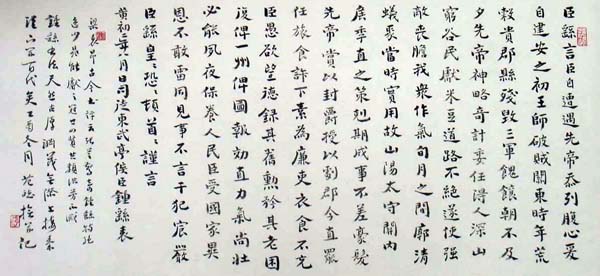 臣繇言臣自遭遇先帝忝列腹心爰
自建安之初王師破賊關東時年荒
穀貴郡縣殘毀三軍餽饟朝不及
夕先帝神略奇計委任得人深山
窮谷民獻米豆道路不絕遂使強
敵喪膽我眾作氣旬月之間廓清
蟻聚當時實用故山陽太守關內
侯季直之策剋期成事不差豪髮
先帝賞以封爵授以劇郡今直罷
任旅食許下素為廉吏衣食不充
臣愚欲望聖德錄其舊勳矜其老困
復俾一州俾圖報效直力氣尚壯
必能夙夜保養人民臣受國家異
恩不敢雷同見事不言干犯宸嚴
臣繇皇〻恐〻頓首〻謹言
黃初二年八月日司徒東武亭侯臣鍾繇表